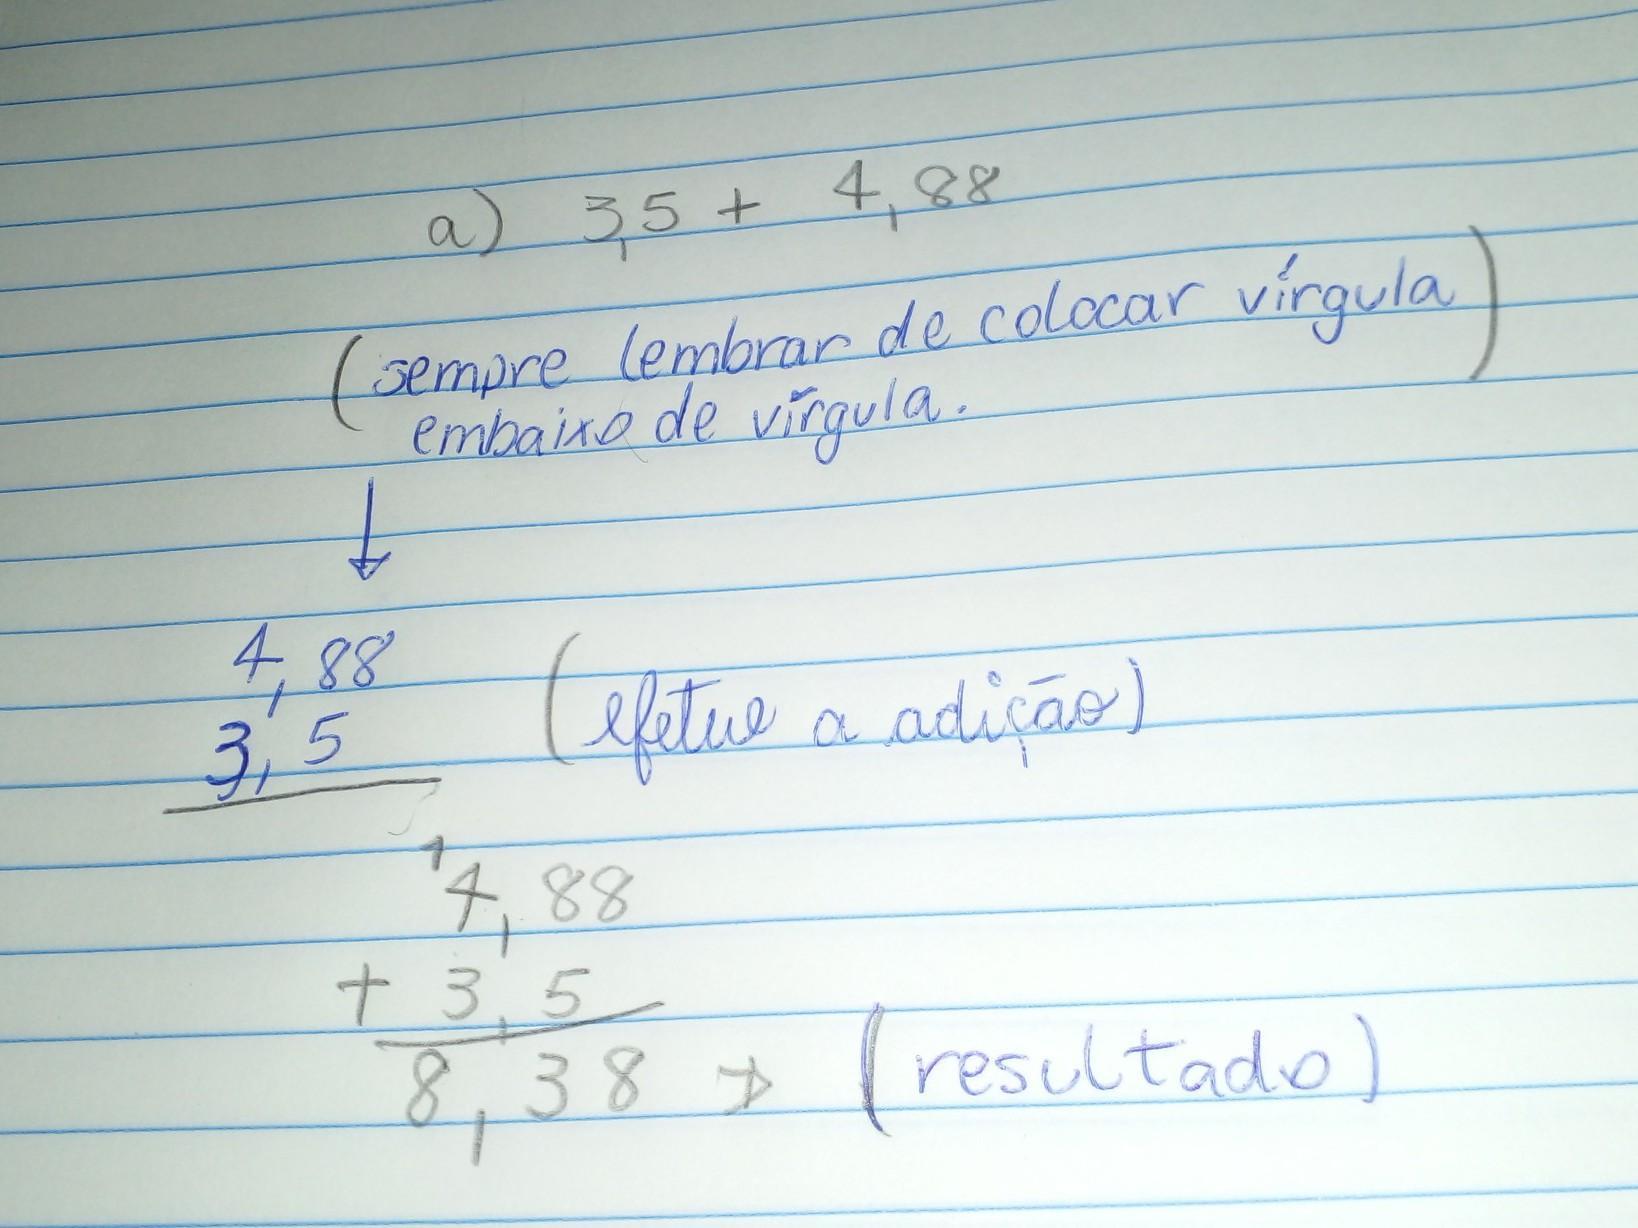 a) 3,5 + 4,88
(sempre lembrar de colocar vírgula)
embaixo de vírgula.
↓
4,88
3,5
(efetue a adição)
1
4,88
+ 3,5
8,38 → (resultado)